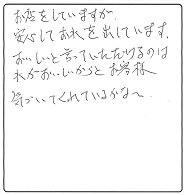 お店をしていますが、
安心してお米を出しています。
おいしいと言っていただけるのは
米がおいしいからとお客様
気づいてくれているかな〜